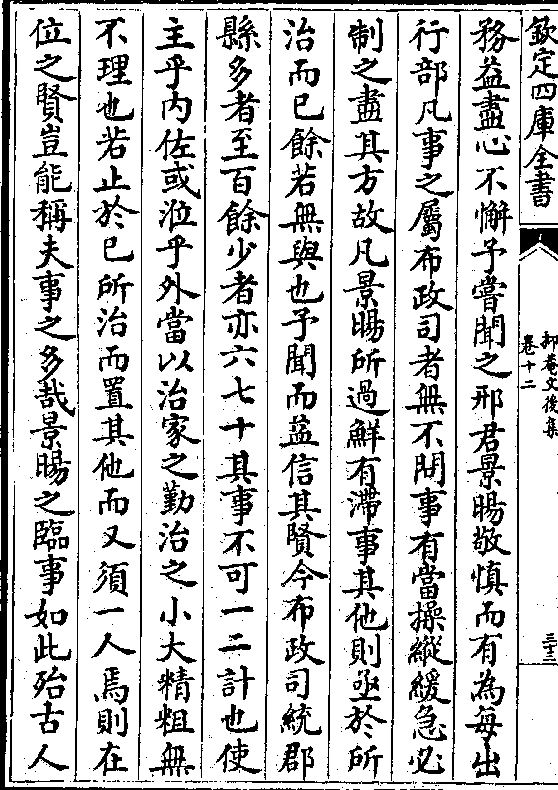 欽定四庫全書
抑菴文後集
卷十二
三十三
務益盡心不懈予嘗聞之邢君景暘敬慎而有為每出
行部凡事之屬布政司者無不閱事有當操縱緩急必
制之盡其方故凡景暘所過鮮有滯事其他則亟於所
治而已餘若無與也予聞而益信其賢今布政司統郡
縣多者至百餘少者亦六七十其事不可一二計也使
主乎內佐或涖乎外當以治家之勤治之小大精粗無
不理也若止於已所治而置其他而又須一人焉則在
位之賢豈能稱夫事之多哉景暘之臨事如此殆古人